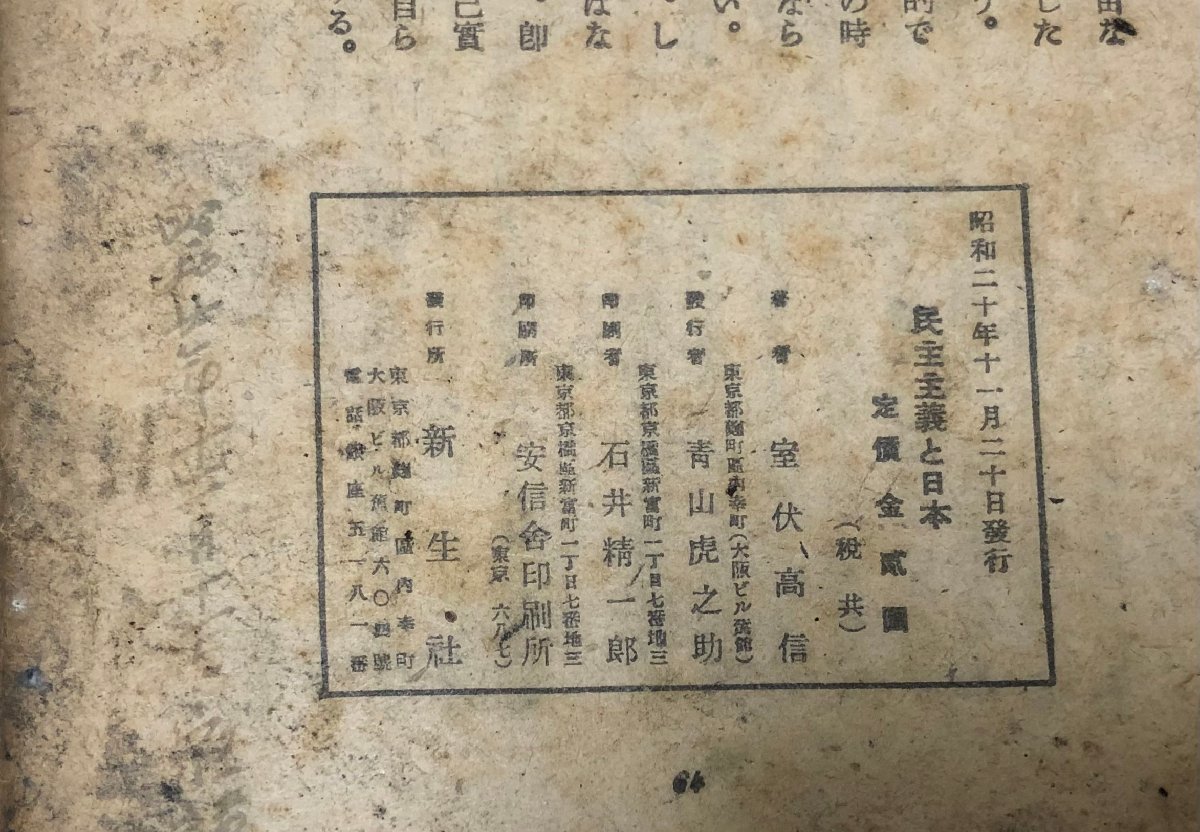 由な
した
う。
的で
の時
なら
い。
。し
はな
。卽
己實
自ら
る。
昭和二十年十一月二十日發行
民主主義と日本
定價金貳圓
(稅共)
著者 室伏高信
東京都麴町區內幸町(大阪ビル舊館)
發行者 靑山虎之助
東京都京橋區新富町一丁目七番地三
印刷者 石井精一郎
東京都京橋區新富町一丁目七番地三
印刷所 安信舍印刷所
(東京 六八七)
發行所 新生社
東京都麴町區內幸町
大阪ビル舊館六〇號
電話銀座五一八一番
64
昭和廿年